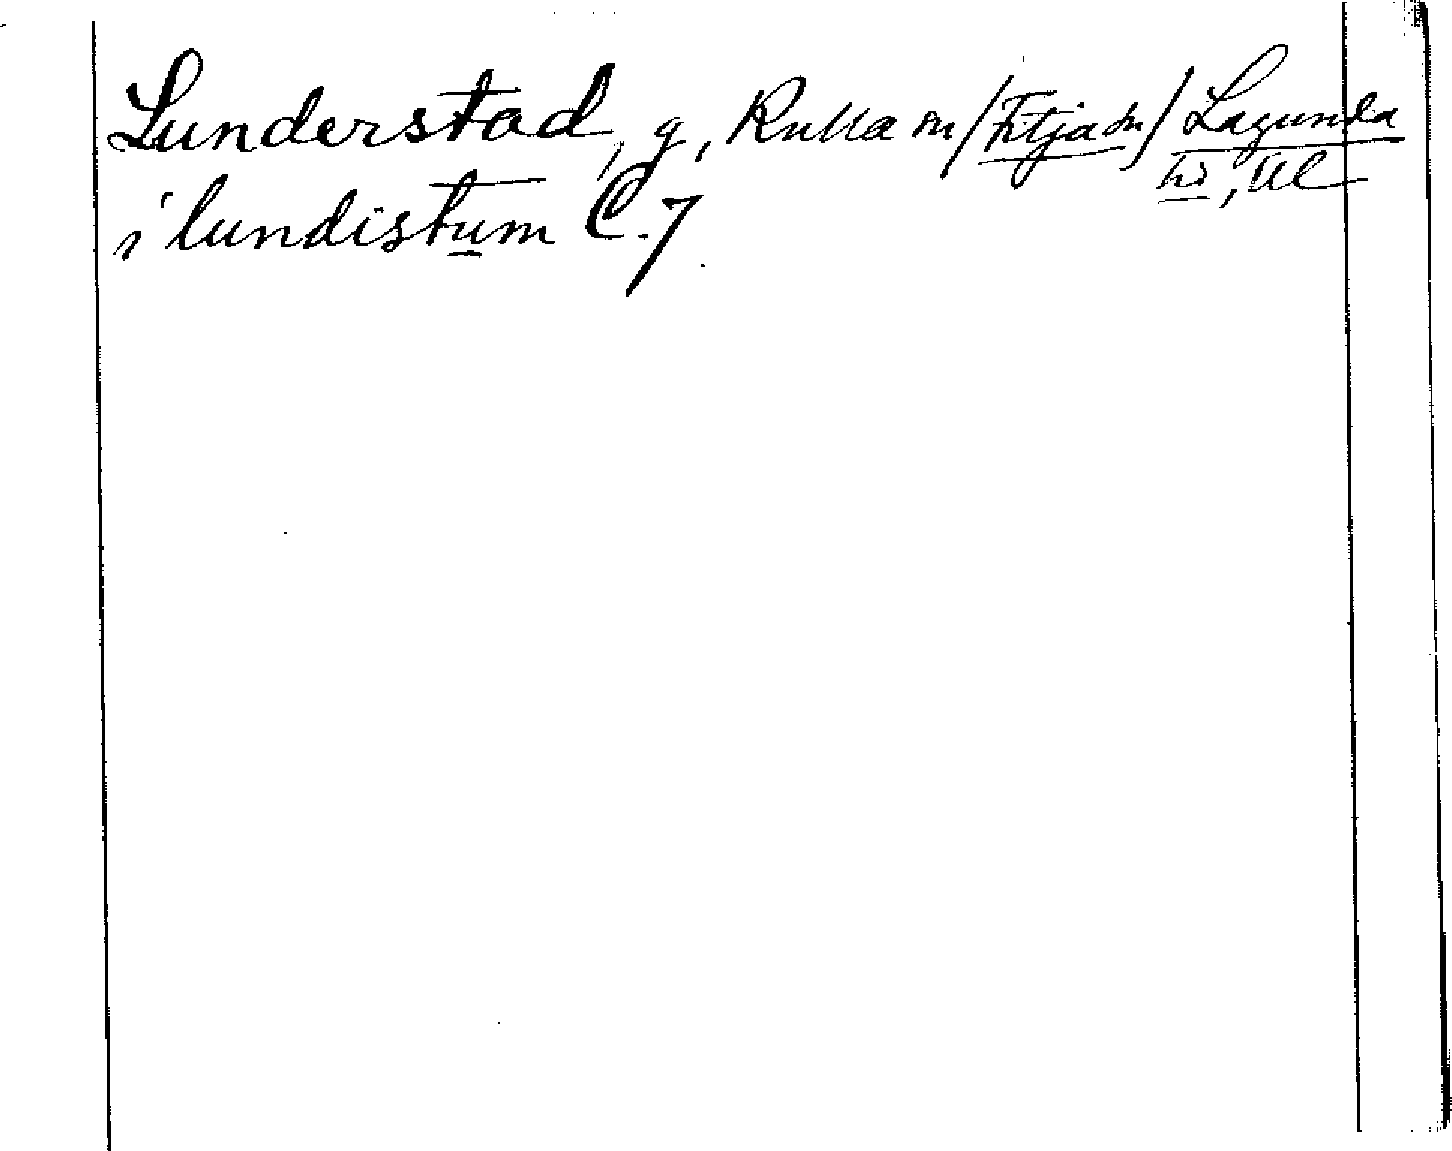 Lunderstad, g, Kulla sn /Fitja sn/ Lagunda
hd, Ul
i lundistum C.7